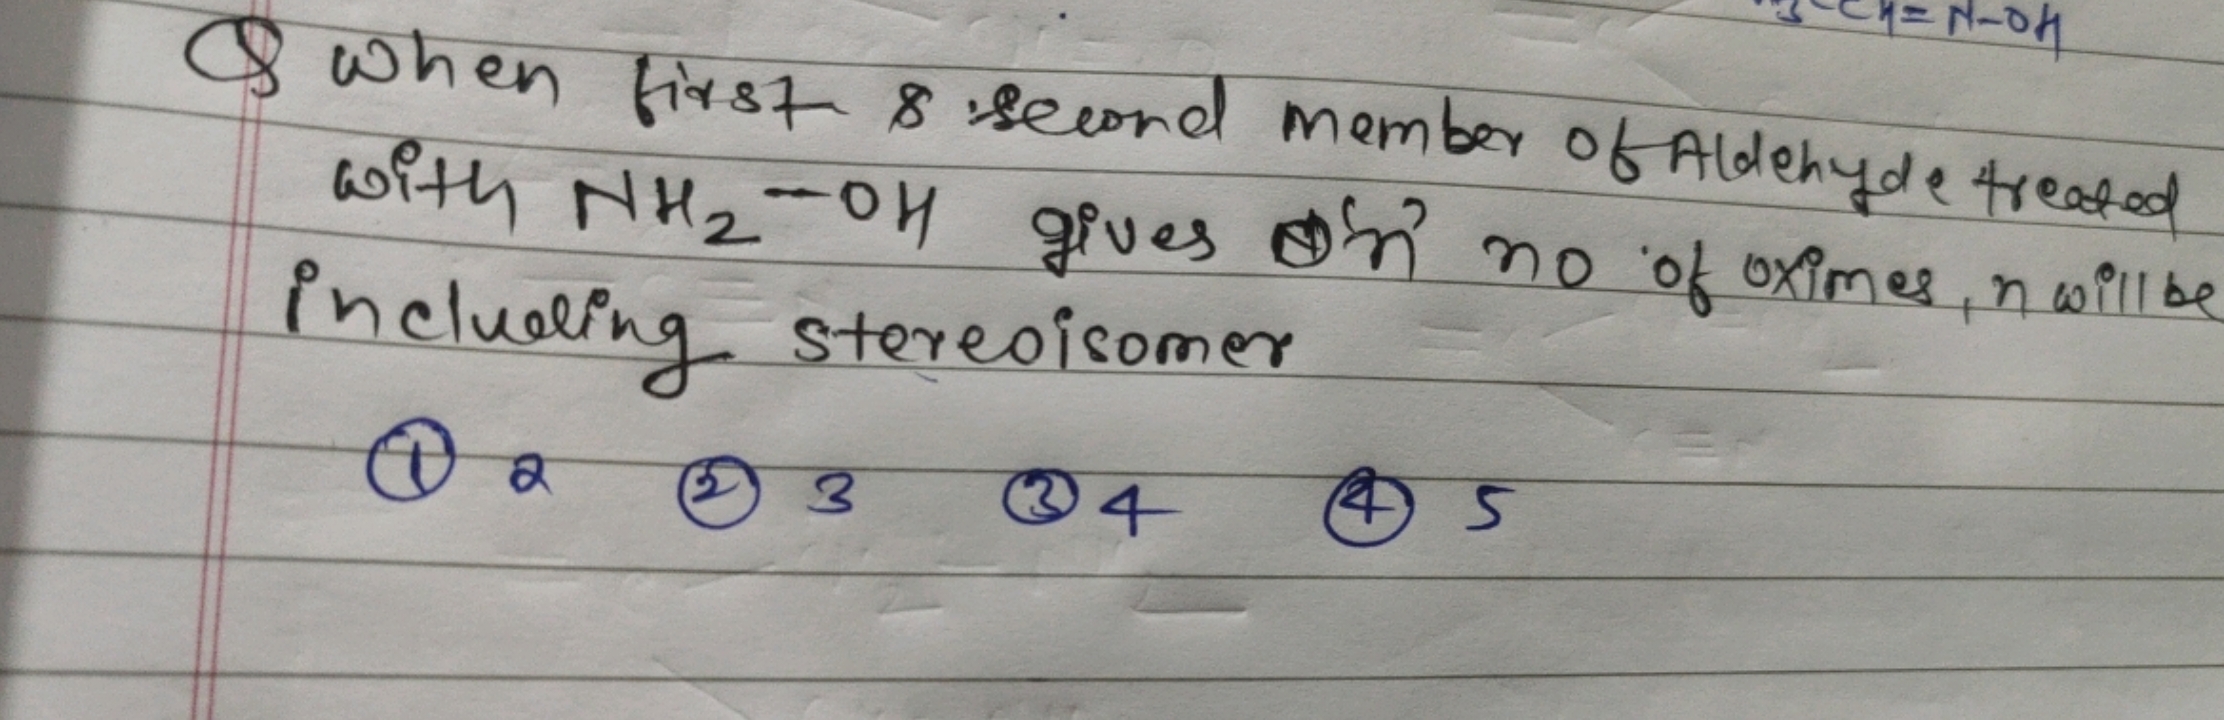 CH=N-OH
Q when first & second member of Aldehyde treated
with NH₂-OH gives 'n' no of oximes, n will be
including stereoisomer
① 2 ② 3 ③ 4 ④ 5